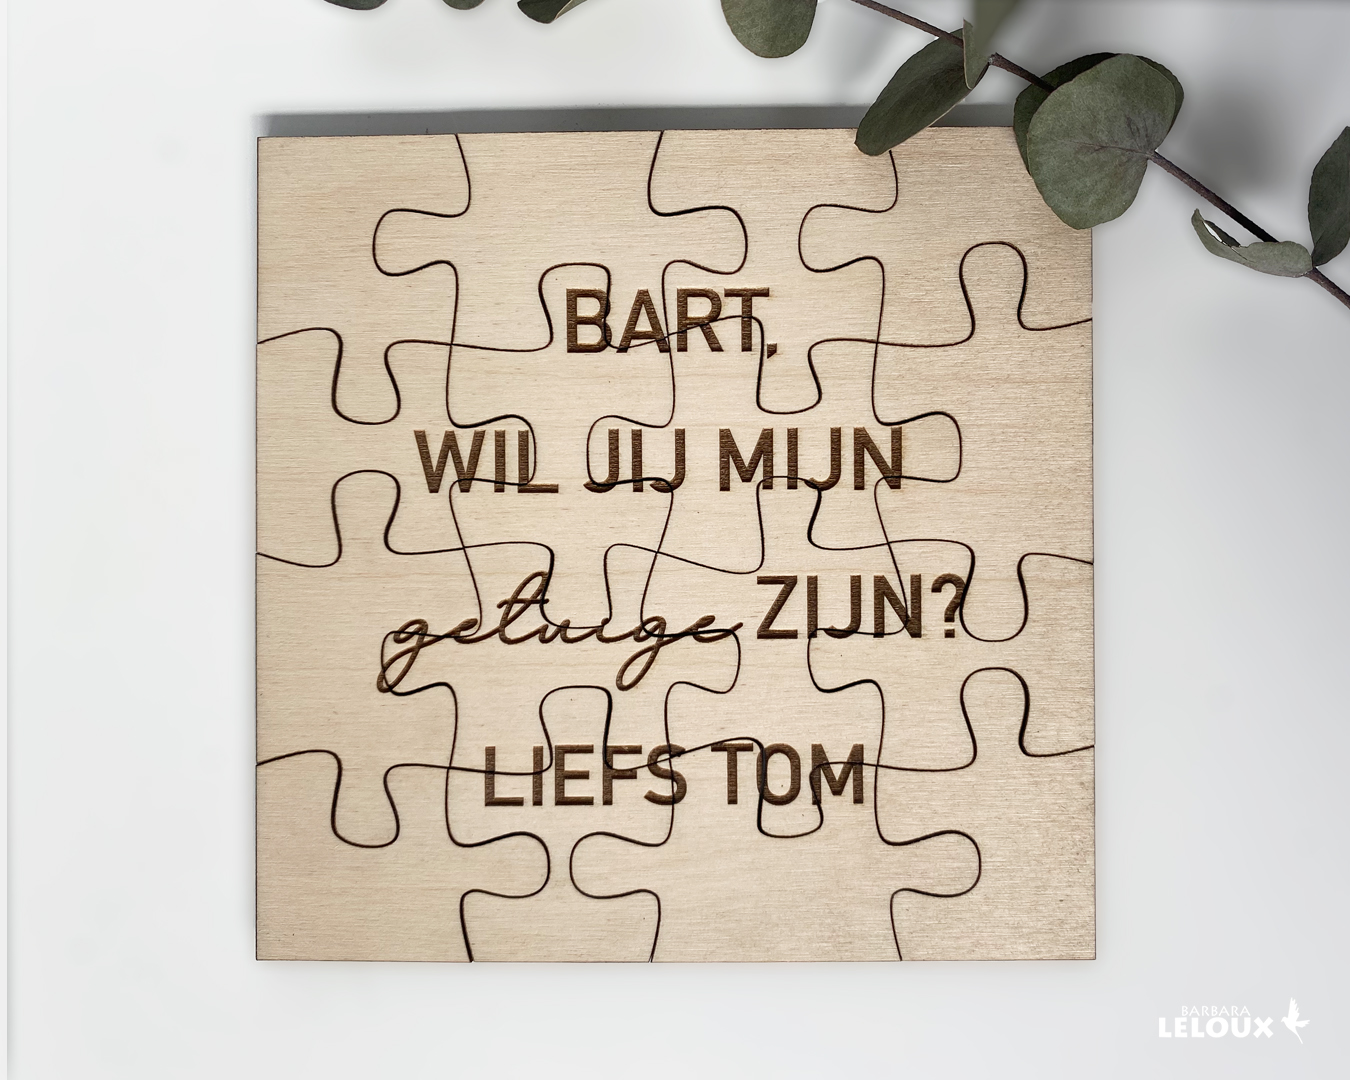 BART,
WIL JIJ MIJN
getuige ZIJN?
LIEFS TOM
BARBARA
LELOUX